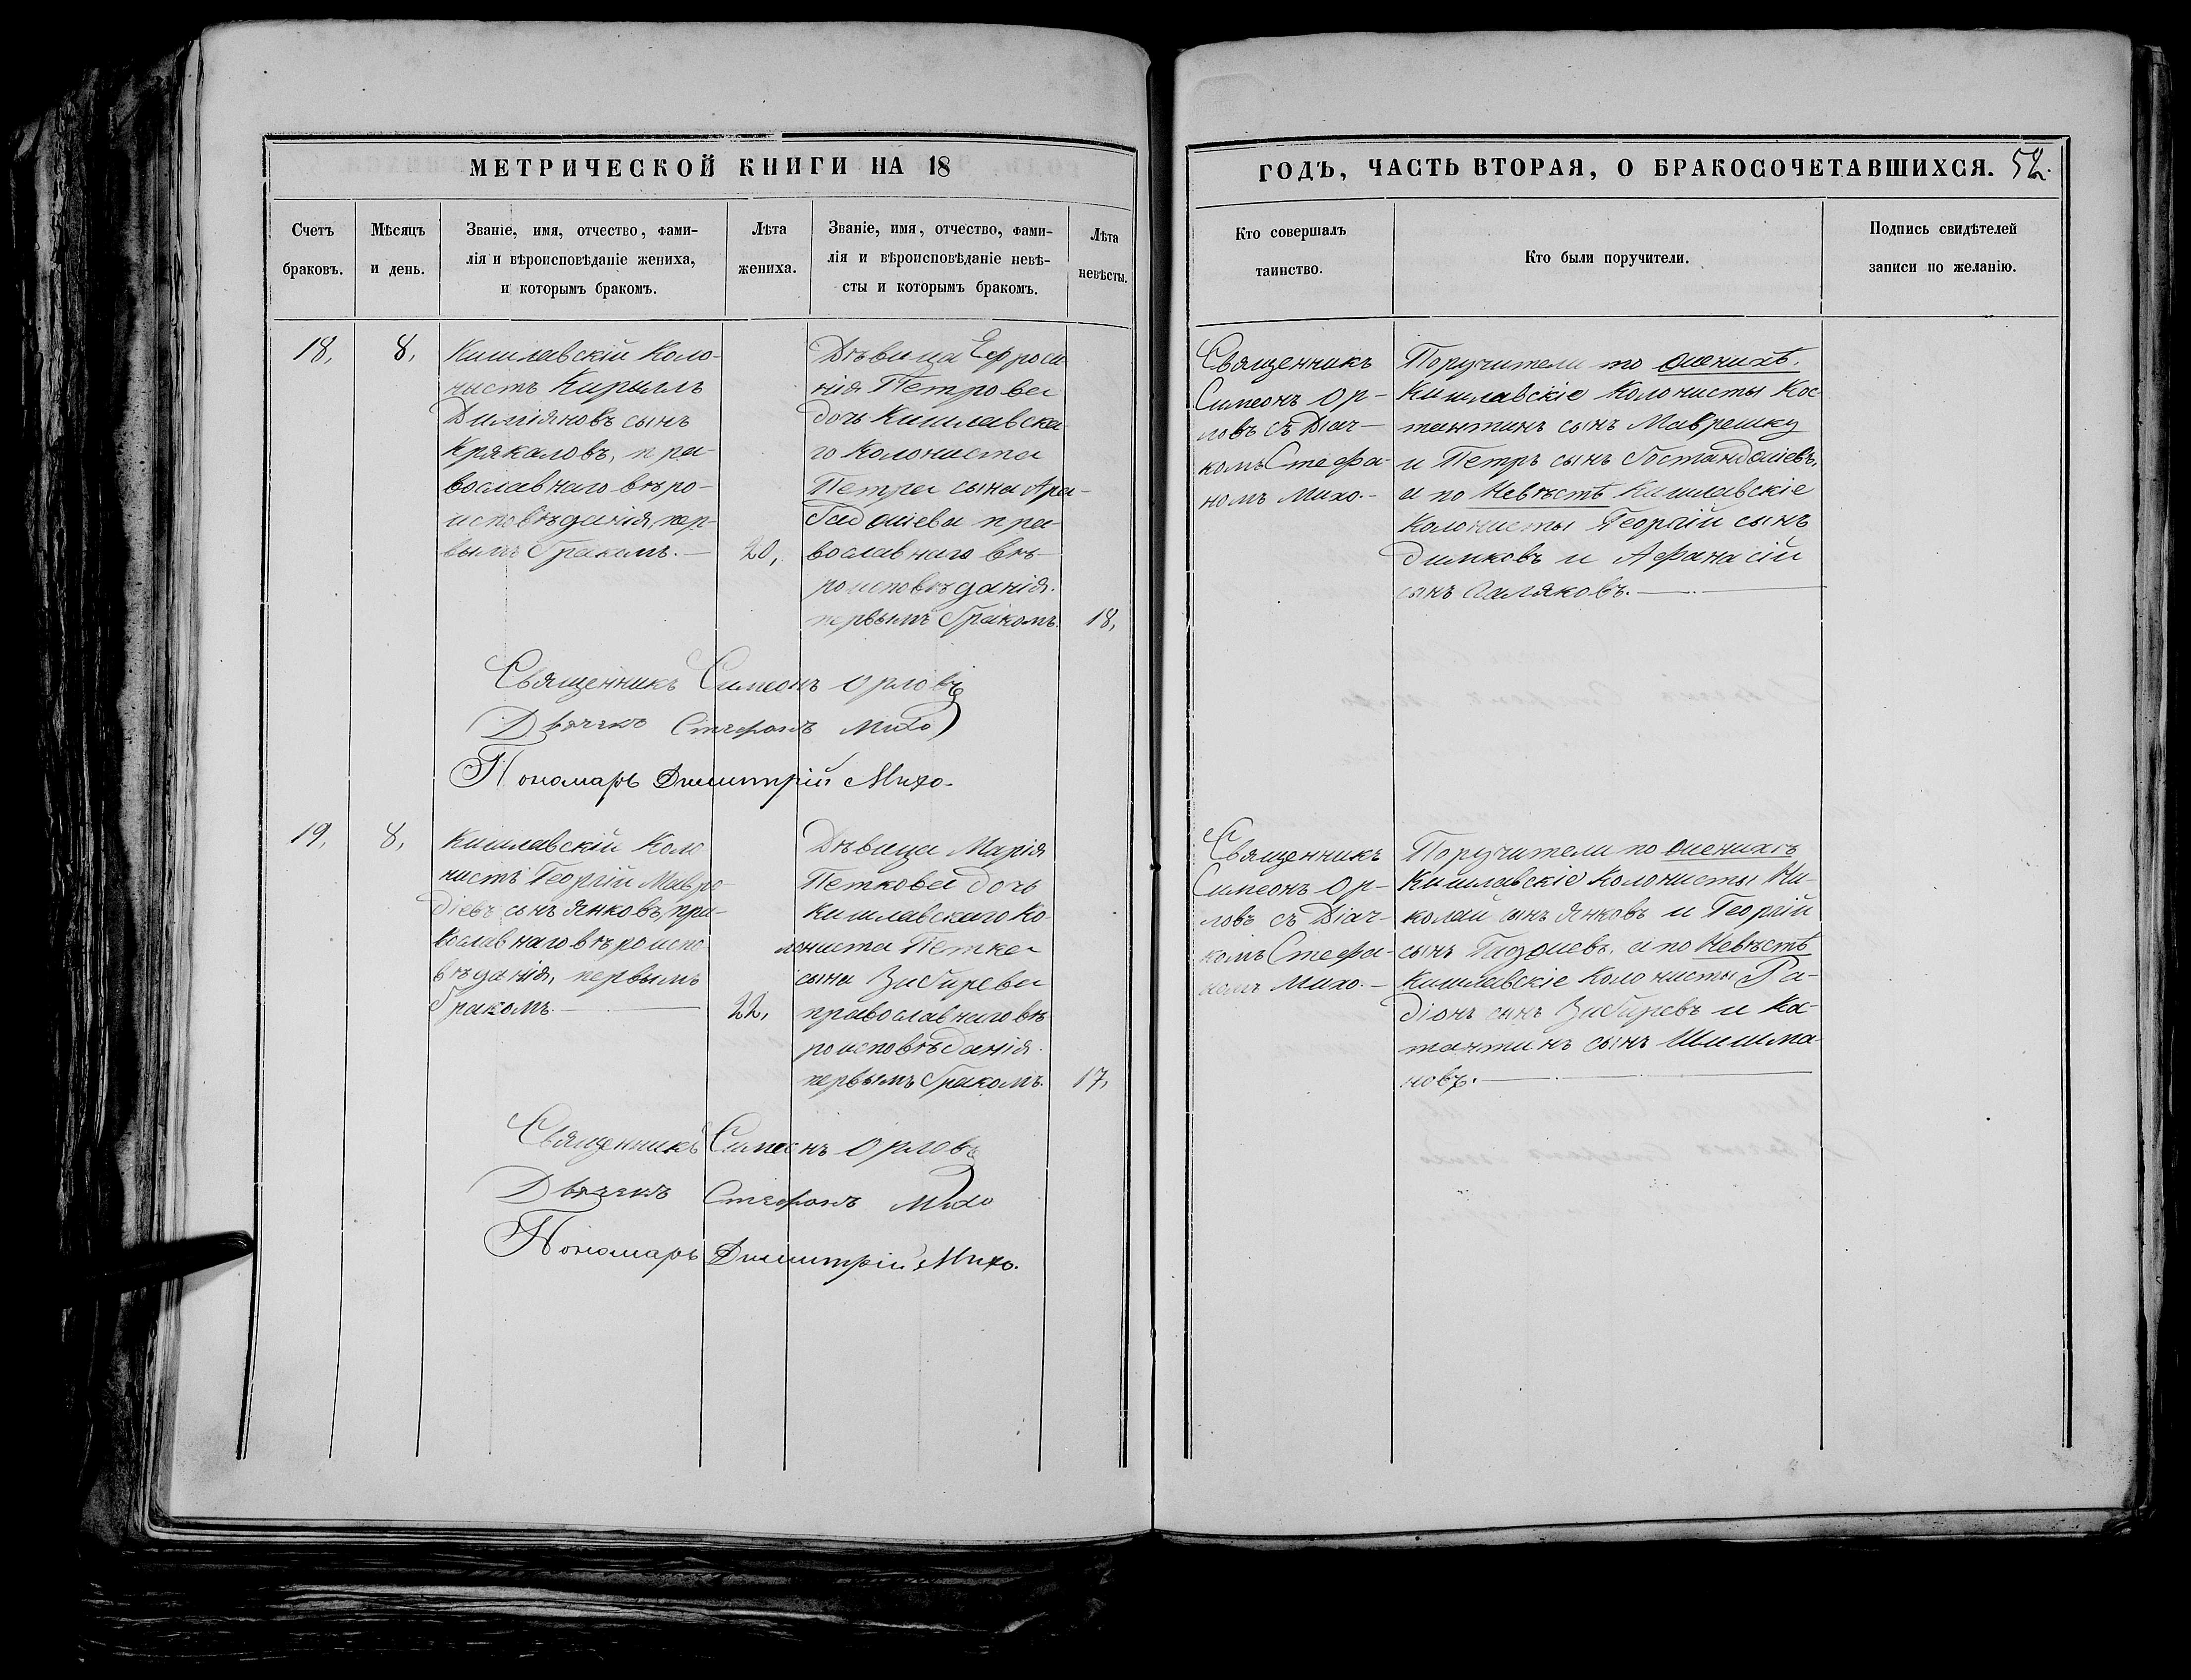 МЕТРИЧЕСКОЙ КНИГИ НА 18
Счетъ браковъ.
Мѣсяцъ и день.
Званіе, имя, отчество, фами-
лія и вѣроисповѣданіе жениха,
и которымъ бракомъ.
Лѣта жениха.
Званіе, имя, отчество, фами-
лія и вѣроисповѣданіе невѣ-
сты и которымъ бракомъ.
Лѣта невѣсты.
18,
8,
Кишлавскій Коло-
нистъ Кириллъ
Диміяновъ сынъ
Крякаловъ, пра-
вославнаго вѣро-
исповѣданія, пер-
вымъ бракомъ.
20,
Дѣвица Ефроси
нія Петрова
дочь Кишлавска
го Колониста
Петра сына
православнаго вѣ-
роисповѣданія.
первымъ бракомъ.
18,
Священникъ Симеонъ Орловъ
Дьячекъ Стефанъ Михо
Пономарь Димитрій Михо.
19,
8,
Кишлавскій Коло
нистъ Георгій Мавро-
діевъ сынъ Янковъ, пра-
вославнаго вѣроиспо
вѣданія, первымъ
бракомъ.
22,
Дѣвица Марія
Петкова дочь
Кишлавскаго Ко
лониста Петка
сына Забирева
православнаго вѣ
роисповѣданія.
первымъ бракомъ.
17,
Священникъ Симеонъ Орловъ
Дьячекъ Стефанъ Михо
Пономарь Димитрій Михо.
ГОДЪ, ЧАСТЬ ВТОРАЯ, О БРАКОСОЧЕТАВШИХСЯ. 52.
Кто совершалъ
таинство.
Кто были поручители.
Подпись свидѣтелей
записи по желанію.
Священникъ
Симеонъ Ор-
ловъ съ Діач-
комъ Стефа-
номъ Михо.-
Поручители по женихѣ.
Кишлавскіе Колонисты Кос
тантинъ сынъ
и Петръ сынъ
а по Невѣстѣ Кишлавскіе
Колонисты Георгій сынъ
Димковъ и Афанасій
сынъ
Священникъ
Симеонъ Ор-
ловъ съ Діач-
комъ Стефа-
номъ Михо.-
Поручители по женихѣ
Кишлавскіе Колонисты Ни-
колай сынъ Янковъ и Георгій
сынъ а по Невѣстѣ
Кишлавскіе Колонисты Ра-
діонъ сынъ Забиревъ и Ко-
тантинъ сынъ Шишма
новъ.